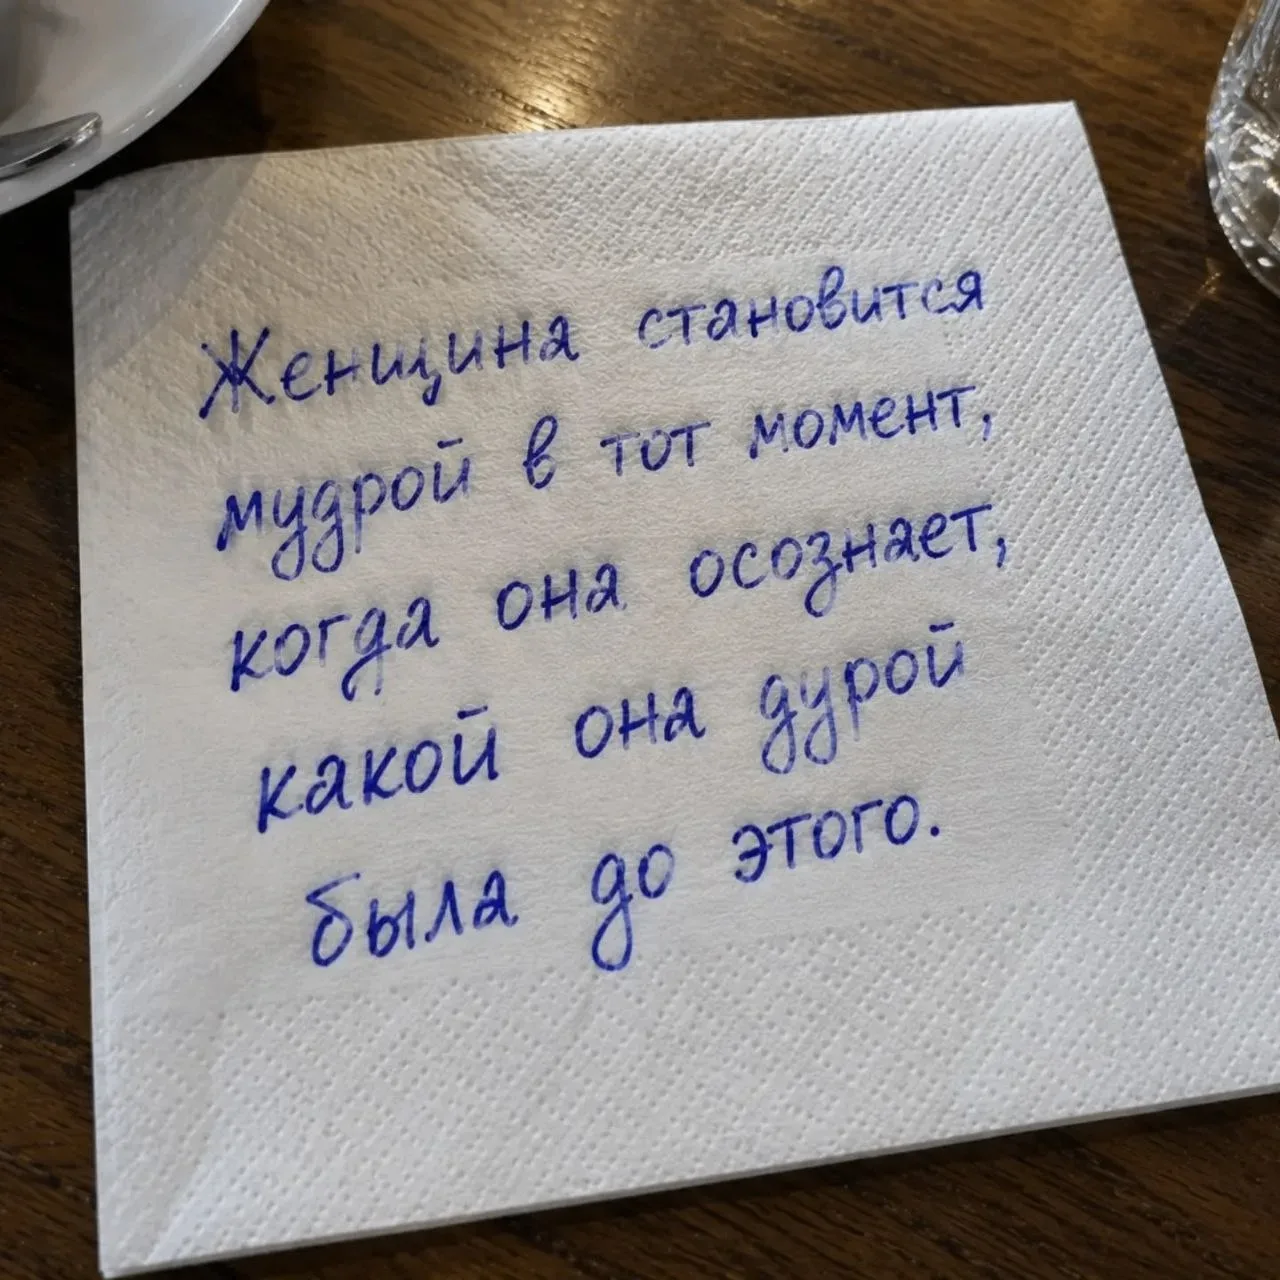 Женщина становится
мудрой в тот момент,
когда она осознает,
какой она дурой
была до этого.